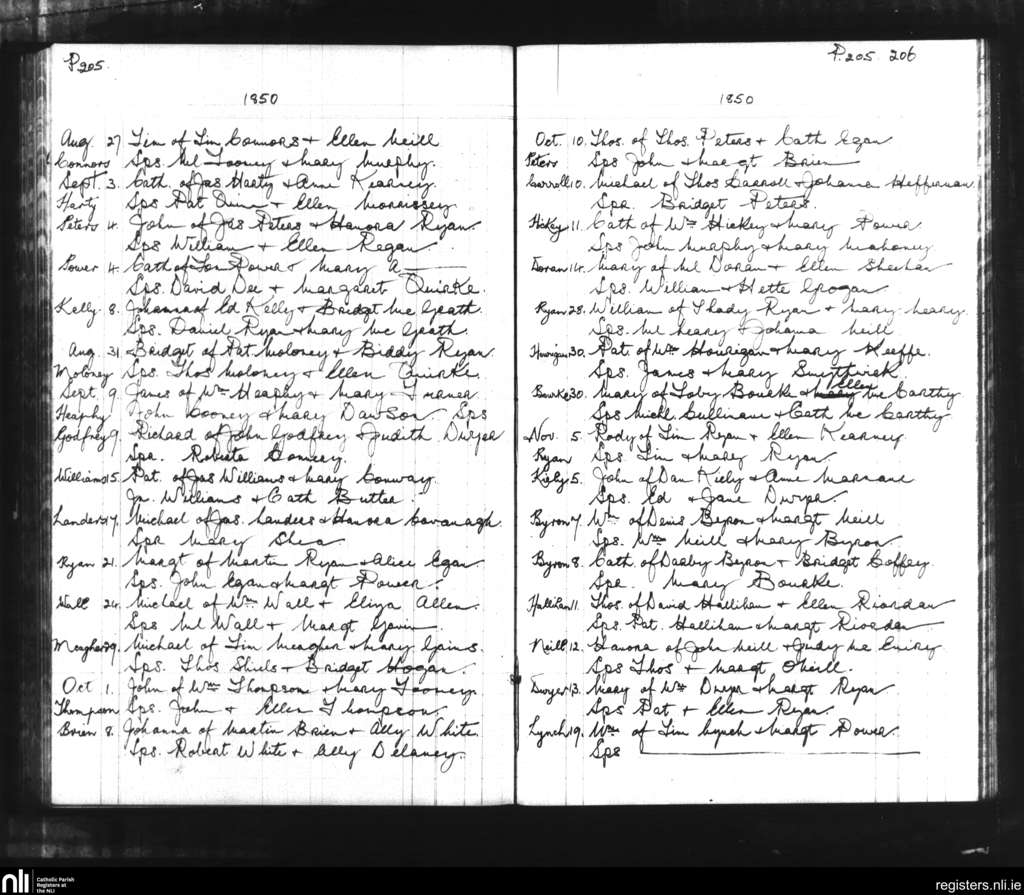 P. 205.
1850
Aug. 27 Tim of Tim Connors & Ellen Neill
Connors Sps Ml Tooney & Mary Murphy.
Sept. 3. Cath. of Jas Harty & Anne Kearney.
Harty Sps Pat Quinn & Ellen Morrissey
Peters 4. John of Jas Peters & Hanora Ryan.
Sps William & Ellen Regan
Power 4. Cath of Tom Power & Mary A
Sps. David Dee & Margaret Quirke.
Kelly. 8. Johanna of Ed Kelly & Bridget Mc Grath
Sps. Daniel Ryan & Mary Mc Grath.
Aug. 31. Bridget of Pat Moloney & Biddy Ryan
Moloney Sps. Thos Moloney & Ellen Quirke.
Sept. 9. James of Wm Heaphy & Mary Turner.
Heaphy John Cooney & Mary Dawson. Sps
Godfrey 9. Richard of John Godfrey & Judith Dwyer
Spr. Roberta
Williams 15. Pat. of Jas Williams & Mary Conway.
Jn. Williams & Cath Butler.
Landers 17. Michael of Jas. Landers & Hanora Cavanagh.
Spr Mary Shea
Ryan 21. Margt of Martin Ryan & Alice Egan
Sps. John Egan & Margt Power.
Wall 24. Michael of Wm Wall & Eliza Allen.
Sps Ml Wall & Margt Gavin.
Meagher 29. Michael of Tim Meagher & Mary
Sps. Thos Shiels & Bridget Hogan.
Oct 1. John of Wm Thompson & Mary Tooney
Thompson Sps. John & Ellen Thompson.
Brien 8. Johanna of Martin Brien & Ally White
Sps. Robert White & Ally Delaney.
P. 205 206
1850
Oct. 10. Thos. of Thos. Peters & Cath Egan
Peters Sps John & Margt Brien
Carroll 10. Michael of Thos Carroll & Johanna Heffernan.
Spr. Bridget Peters.
Hickey 11. Cath of Wm Hickey & Mary Power
Sps John Murphy & Mary Mahoney
Doran 14. Mary of Ml Doran & Ellen Sheehan
Sps. William & Hette Grogan.
Ryan 28. William of Thady Ryan & Mary Leary.
Sps. Ml Leary & Johanna Neill
Hourigan 30. Pat. of Wm Hourigan & Mary Keeffe.
Sps. James & Mary Smithwick
Bourke 30. Mary of Toby Bourke & Ellen Mc Carthy
Sps Michl Cullinane & Cath Mc Carthy
Nov. 5. Rody of Tim Ryan & Ellen Kearney.
Ryan Sps Tim & Mary Ryan.
Kirby 5. John of Dan Kirby & Anne Marnane
Sps. Ed & Jane Dwyer.
Byron 7. Wm of Denis Byron & Margt Neill
Sps. Wm Neill & Mary Byron.
Byron 8. Cath. of Darby Byron & Bridget Coffey.
Spr. Mary Bourke.
Hallihan 11. Thos. of David Hallihan & Ellen Riordan
Sps. Pat. Hallihan & Margt Riordan
Neill 12. Hanora of John Neill & Judy Mc Eniry
Sps Thos & Margt ONeill.
Dwyer 13. Mary of Wm Dwyer & Margt Ryan
Sps Pat & Ellen Ryan.
Lynch 19. Wm of Tim Lynch & Margt Power.
Sps
nli Catholic Parish Registers at the NLI
registers.nli.ie